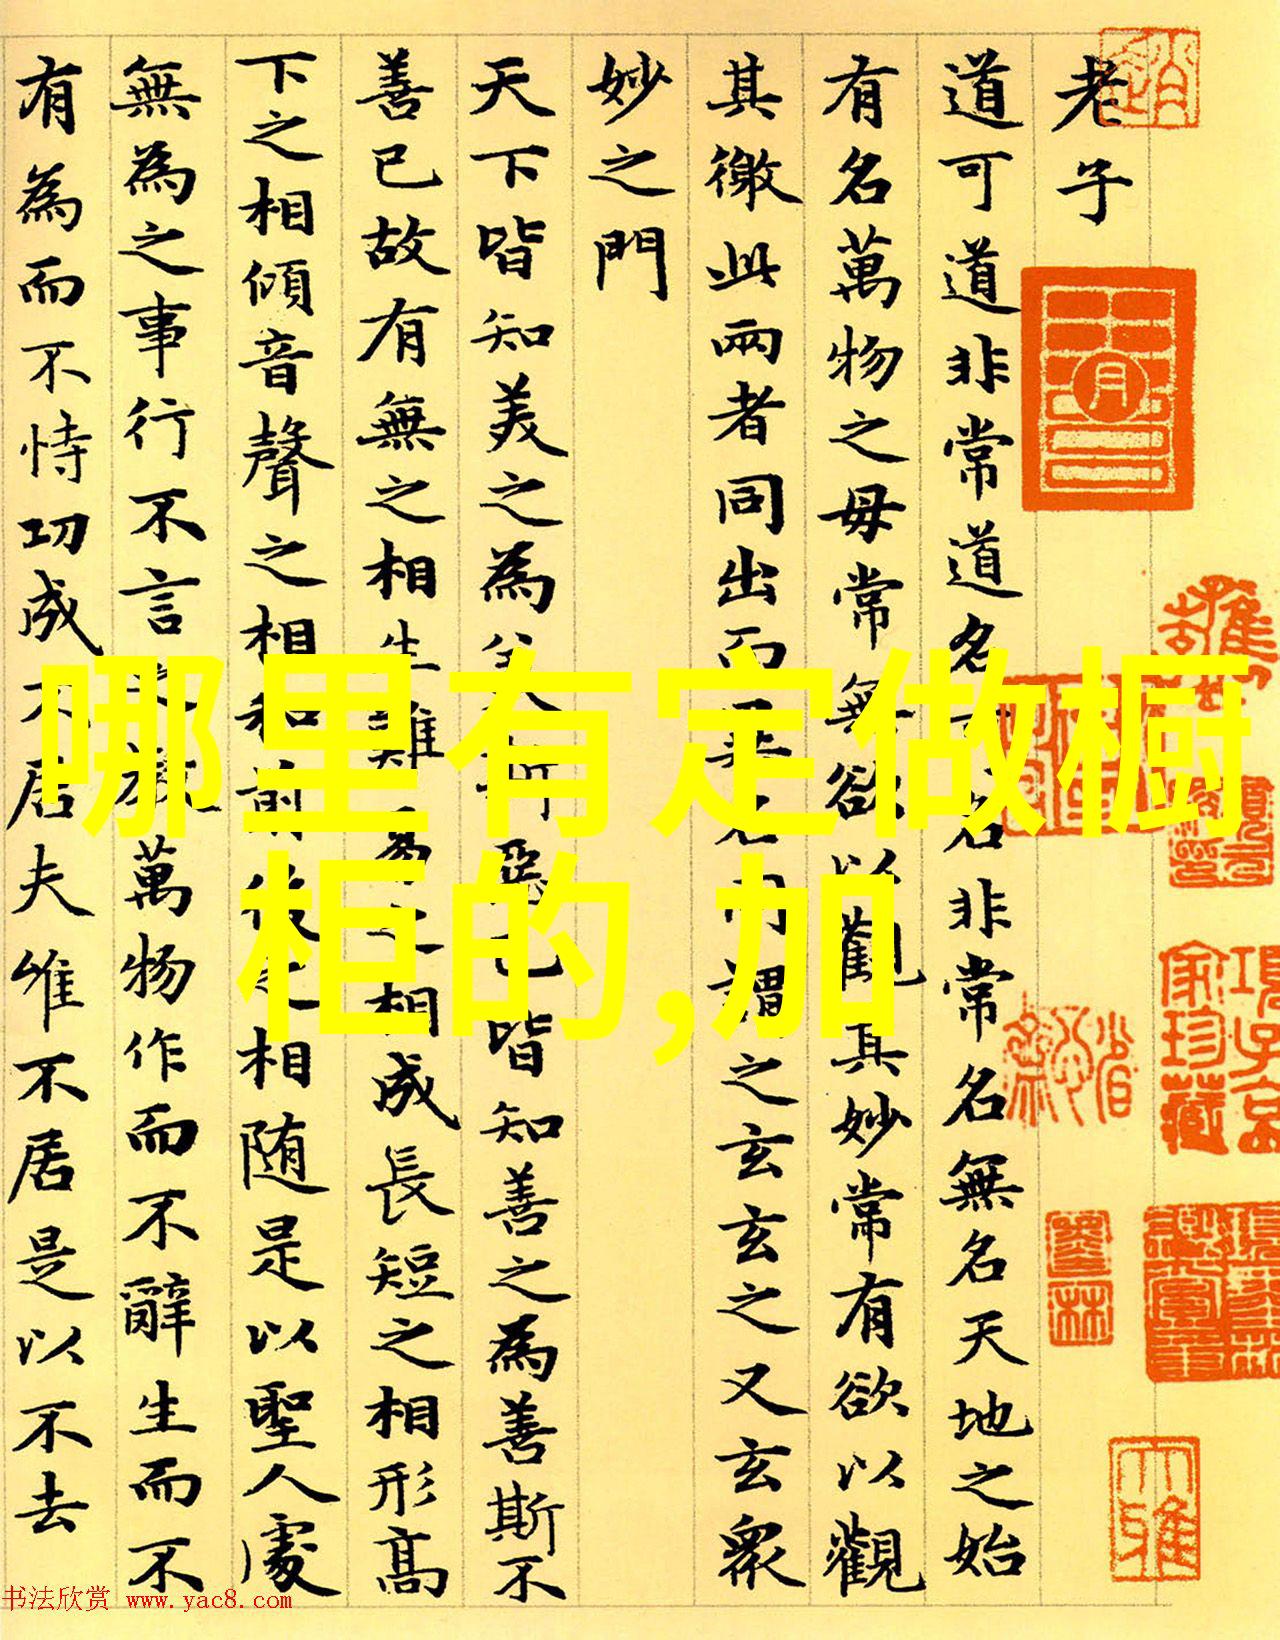 老子
道可道非常道名可名非常名無名天地之始
有名萬物之母常無欲以觀其妙常有欲以觀
其徼此兩者同出而異名同謂之玄玄之又玄眾
妙之門
天下皆知美之為美斯惡已皆知善之為善斯不
善已故有無之相生難易之相成長短之相形高
下之相傾音聲之相和前後之相隨是以聖人處
無為之事行不言之教萬物作而不辭生而不
有為而不恃功成不居夫唯不居是以不去
哪里有定做橱
柜的,加
项子京
家珍藏
大雅
书法欣赏 www.yac8.com